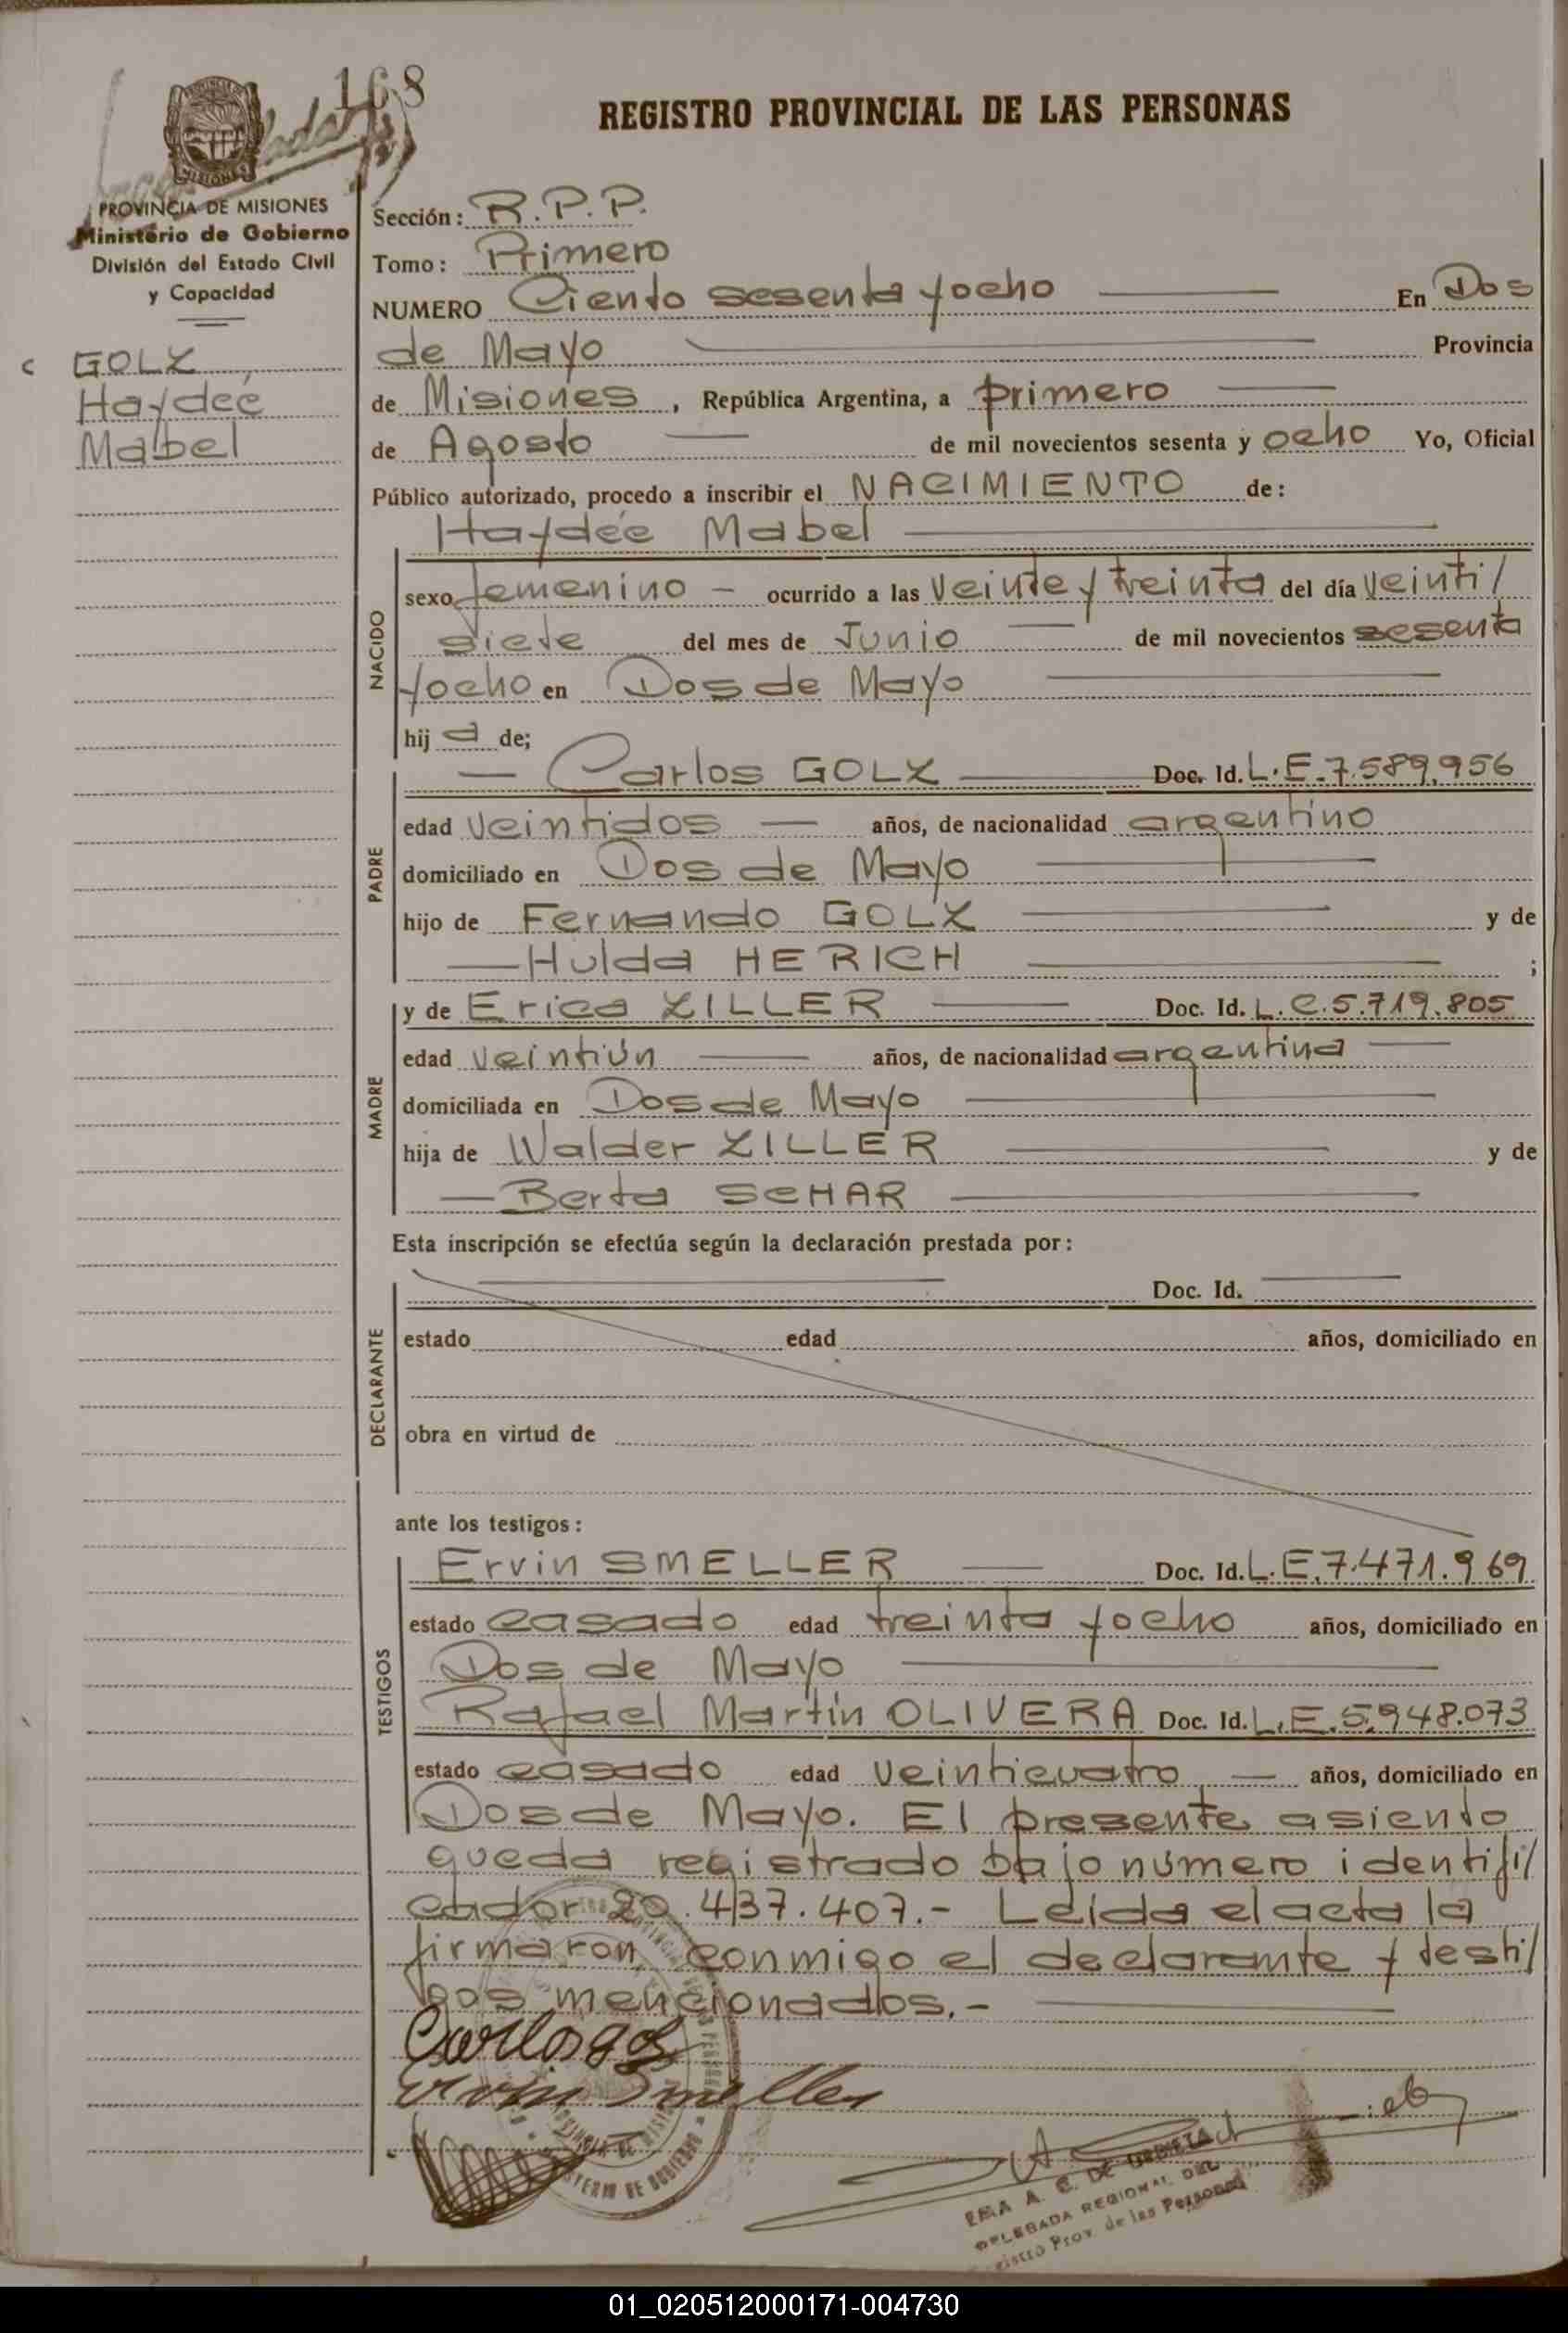 168
REGISTRO PROVINCIAL DE LAS PERSONAS
PROVINCIA DE MISIONES
Ministerio de Gobierno
División del Estado Civil
y Capacidad
GOLZ,
Haydeé
Mabel
Sección: R.P.P.
Tomo: Primero
NUMERO Ciento sesenta y ocho En Dos
de Mayo Provincia
de Misiones, República Argentina, a primero
de Agosto de mil novecientos sesenta y ocho Yo, Oficial
Público autorizado, procedo a inscribir el NACIMIENTO de:
Haydeé Mabel
NACIDO
sexo femenino - ocurrido a las veinte y treinta del día veinti/
siete del mes de Junio de mil novecientos sesenta
y ocho en Dos de Mayo
hij a de;
PADRE
Carlos GOLZ Doc. Id. L.E.7.589.956
edad veintidos años, de nacionalidad argentino
domiciliado en Dos de Mayo
hijo de Fernando GOLZ y de
Hulda HERICH ;
MADRE
y de Erica ZILLER Doc. Id. L.C.5.719.805
edad veintiún años, de nacionalidad argentina
domiciliada en Dos de Mayo
hija de Walder ZILLER y de
Berta SCHAR
Esta inscripción se efectúa según la declaración prestada por:
DECLARANTE
Doc. Id.
estado edad años, domiciliado en
obra en virtud de
ante los testigos:
TESTIGOS
Ervin SMELLER Doc. Id. L.E.7.471.969
estado casado edad treinta y ocho años, domiciliado en
Dos de Mayo
Rafael Martín OLIVERA Doc. Id. L.E.5.948.073
estado casado edad veinticuatro años, domiciliado en
Dos de Mayo. El presente asiento
queda registrado bajo número identifi/
cador 20.437.407.- Leída el acta la
firmaron conmigo el declarante y testi/
gos mencionados.-
Carlos
Ervin Smeller
EMA A. C. DE URRIETA
DELEGADA REGIONAL DEL
Prov. de las Personas
01_020512000171-004730